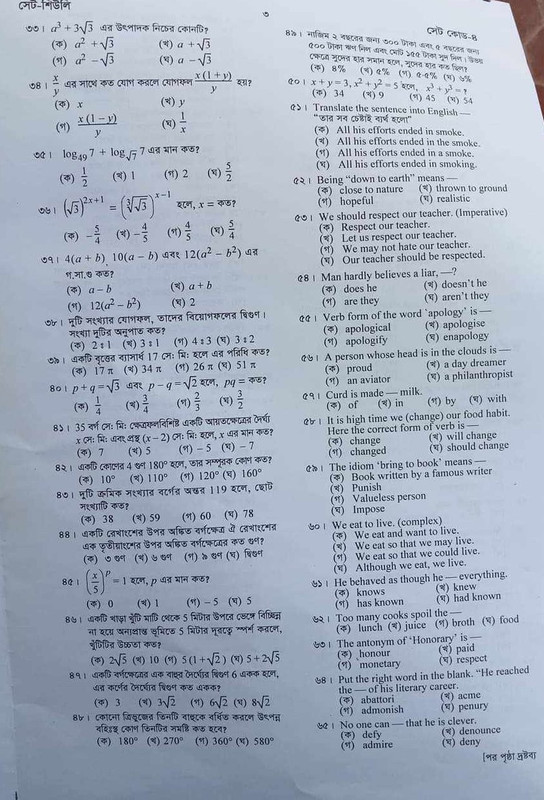 সেট-শিউলি
৩
সেট কোড-৪
৩৩। a³ + 3√3 এর উৎপাদক নিচের কোনটি?
(ক) a² + √3 (খ) a + √3
(গ) a² − √3 (ঘ) a − √3
৩৪। x/y এর সাথে কত যোগ করলে যোগফল x(1 + y)/y হয়?
(ক) x (খ) y
(গ) x(1 − y)/y (ঘ) 1/x
৩৫। log₄₉ 7 + log√7 7 এর মান কত?
(ক) 1/2 (খ) 1 (গ) 2 (ঘ) 5/2
৩৬। (√3)²ˣ⁺¹ = (∛√3)ˣ⁻¹ হলে, x = কত?
(ক) −5/4 (খ) −4/5 (গ) 4/5 (ঘ) 5/4
৩৭। 4(a + b), 10(a − b) এবং 12(a² − b²) এর
গ.সা.গু কত?
(ক) a − b (খ) a + b
(গ) 12(a² − b²) (ঘ) 2
৩৮। দুটি সংখ্যার যোগফল, তাদের বিয়োগফলের দ্বিগুণ।
সংখ্যা দুটির অনুপাত কত?
(ক) 2 : 1 (খ) 3 : 1 (গ) 4 : 3 (ঘ) 3 : 2
৩৯। একটি বৃত্তের ব্যাসার্ধ 17 সে: মি: হলে এর পরিধি কত?
(ক) 17 π (খ) 34 π (গ) 26 π (ঘ) 51 π
৪০। p + q = √3 এবং p − q = √2 হলে, pq = কত?
(ক) 1/4 (খ) 3/4 (গ) 2/3 (ঘ) 3/2
৪১। 35 বর্গ সে: মি: ক্ষেত্রফলবিশিষ্ট একটি আয়তক্ষেত্রের দৈর্ঘ্য
x সে: মি: এবং প্রস্থ (x − 2) সে: মি: হলে, x এর মান কত?
(ক) 7 (খ) 5 (গ) − 5 (ঘ) − 7
৪২। একটি কোণের 4 গুণ 180° হলে, তার সম্পূরক কোণ কত?
(ক) 10° (খ) 110° (গ) 120° (ঘ) 160°
৪৩। দুটি ক্রমিক সংখ্যার বর্গের অন্তর 119 হলে, ছোট
সংখ্যাটি কত?
(ক) 38 (খ) 59 (গ) 60 (ঘ) 78
৪৪। একটি রেখাংশের উপর অঙ্কিত বর্গক্ষেত্র ঐ রেখাংশের
এক তৃতীয়াংশের উপর অঙ্কিত বর্গক্ষেত্রের কত গুণ?
(ক) ৩ গুণ (খ) ৬ গুণ (গ) ৯ গুণ (ঘ) দ্বিগুণ
৪৫। (x/5)ᵖ = 1 হলে, p এর মান কত?
(ক) 0 (খ) 1 (গ) − 5 (ঘ) 5
৪৬। একটি খাড়া খুঁটি মাটি থেকে 5 মিটার উপরে ভেঙ্গে বিচ্ছিন্ন
না হয়ে অন্যপ্রান্ত ভূমিতে 5 মিটার দূরত্বে স্পর্শ করলে,
খুঁটিটির উচ্চতা কত?
(ক) 2√5 (খ) 10 (গ) 5(1 + √2) (ঘ) 5 + 2√5
৪৭। একটি বর্গক্ষেত্রের এক বাহুর দৈর্ঘ্যের দ্বিগুণ 6 একক হলে,
এর কর্ণের দৈর্ঘ্যের দ্বিগুণ কত একক?
(ক) 3 (খ) 3√2 (গ) 6√2 (ঘ) 8√2
৪৮। কোনো ত্রিভুজের তিনটি বাহুকে বর্ধিত করলে উৎপন্ন
বহিঃস্থ কোণ তিনটির সমষ্টি কত হবে?
(ক) 180° (খ) 270° (গ) 360° (ঘ) 580°
৪৯। নাজিম ২ বছরের জন্য ৩০০ টাকা এবং ৫ বছরের জন্য
৫০০ টাকা ঋণ নিল এবং মোট ১৫৫ টাকা সুদ দিল। উভয়
ক্ষেত্রে সুদের হার সমান হলে, সুদের হার কত ছিল?
(ক) 8% (খ) ৫% (গ) ৫·৫% (ঘ) ৬%
৫০। x + y = 3, x² + y² = 5 হলে, x³ + y³ = ?
(ক) 34 (খ) 9 (গ) 45 (ঘ) 54
৫১। Translate the sentence into English —
“তার সব চেষ্টাই ব্যর্থ হলো”
(ক) All his efforts ended in smoke.
(খ) All his efforts ended in the smoke.
(গ) All his efforts ended in a smoke.
(ঘ) All his efforts ended in smoking.
৫২। Being “down to earth” means —
(ক) close to nature (খ) thrown to ground
(গ) hopeful (ঘ) realistic
৫৩। We should respect our teacher. (Imperative)
(ক) Respect our teacher.
(খ) Let us respect our teacher.
(গ) We may not hate our teacher.
(ঘ) Our teacher should be respected.
৫৪। Man hardly believes a liar, —?
(ক) does he (খ) doesn't he
(গ) are they (ঘ) aren't they
৫৫। Verb form of the word 'apology' is —
(ক) apological (খ) apologise
(গ) apologify (ঘ) enapology
৫৬। A person whose head is in the clouds is —
(ক) proud (খ) a day dreamer
(গ) an aviator (ঘ) a philanthropist
৫৭। Curd is made — milk.
(ক) of (খ) in (গ) by (ঘ) with
৫৮। It is high time we (change) our food habit.
Here the correct form of verb is —
(ক) change (খ) will change
(গ) changed (ঘ) should change
৫৯। The idiom 'bring to book' means —
(ক) Book written by a famous writer
(খ) Punish
(গ) Valueless person
(ঘ) Impose
৬০। We eat to live. (complex)
(ক) We eat and want to live.
(খ) We eat so that we may live.
(গ) We eat so that we could live.
(ঘ) Although we eat, we live.
৬১। He behaved as though he — everything.
(ক) knows (খ) knew
(গ) has known (ঘ) had known
৬২। Too many cooks spoil the —
(ক) lunch (খ) juice (গ) broth (ঘ) food
৬৩। The antonym of 'Honorary' is —
(ক) honour (খ) paid
(গ) monetary (ঘ) respect
৬৪। Put the right word in the blank. “He reached
the — of his literary career.
(ক) abattori (খ) acme
(গ) admonish (ঘ) penury
৬৫। No one can — that he is clever.
(ক) defy (খ) denounce
(গ) admire (ঘ) deny
[পর পৃষ্ঠা দ্রষ্টব্য